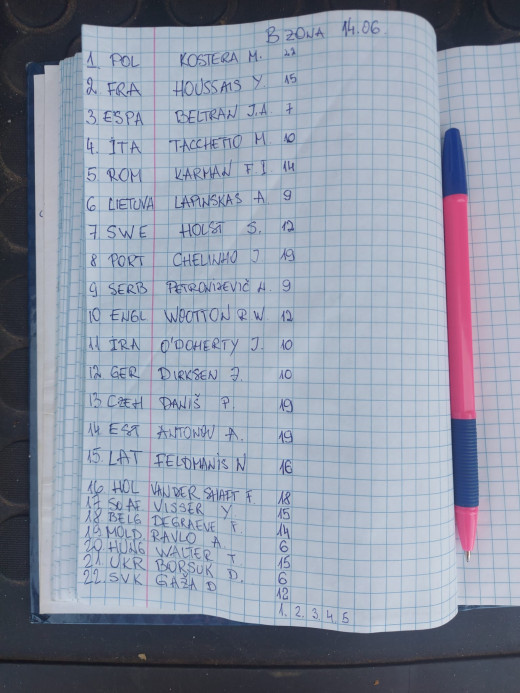 B ZONA 14.06
1. POL KOSTERA M. 22
2 FRA HOUSSAIS Y 15
3 ESPA BELTRAN J.A. 7
4. ITA TACCHETTO M 10
5. ROM KARMAN F. I. 14
6 LIETUVA LAPINSKAS A 9
7. SWE HOLST S. 12
8 PORT CHELINHO J 19
9 SERB PETRONIJEVIČ N. 9
10. ENGL WOOTTON R W. 12
11 IRA O'DOHERTY J. 10
12 GER DIRKSEN J. 10
13 CZEH DANIŠ P. 19
14 EST ANTONOV A. 19
15. LAT FELDMANIS N 16
16. HOL VAN DER SHAFT F. 18
17. SO AF. VISSER Y. 15
18 BELG DEGRAEVE T. 14
19 MOLD RAVLO A. 6
20. HUNG WALTER T 15
21. UKR BORSUK D. 6
22. SVK GAŽA D 12
1. 2. 3. 4. 5